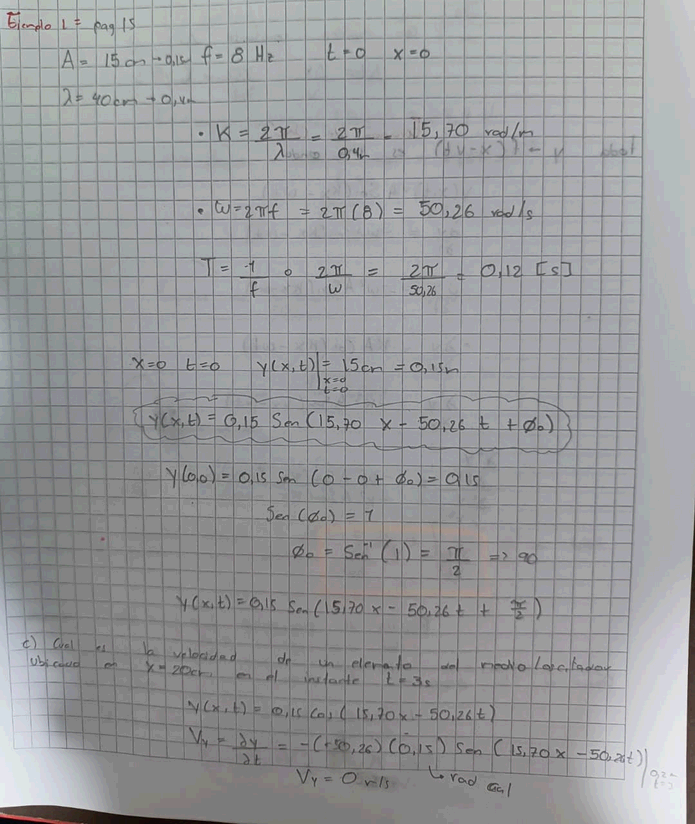 Ejemplo 1 = pag 15
A = 15cm → 0,15 f = 8 Hz t=0 x=0
λ = 40cm → 0,4m
• K = 2π/λ = 2π/0,4 = 15,70 rad/m
• W = 2πf = 2π(8) = 50,26 rad/s
T = 1/f o 2π/W = 2π/50,26 = 0,12 [s]
x=0 t=0 y(x,t)|x=0 t=0 = 15cm = 0,15m
y(x,t) = 0,15 Sen (15,70 x − 50,26 t + ϕ₀)
y(0,0) = 0,15 Sen (0 − 0 + ϕ₀) = 0,15
Sen (ϕ₀) = 1
ϕ₀ = Sen⁻¹ (1) = π/2 => 90
y(x,t) = 0,15 Sen (15,70 x − 50,26 t + π/2)
c) Cual es la velocidad de un elemento del medio
ubicado en x=20cm en el instante t=3s
y(x,t) = 0,15 Cos (15,70x − 50,26t)
Vy = ∂y/∂t = −(−50,26) (0,15) Sen (15,70x − 50,26t)|
Vy = 0 m/s ↳ rad